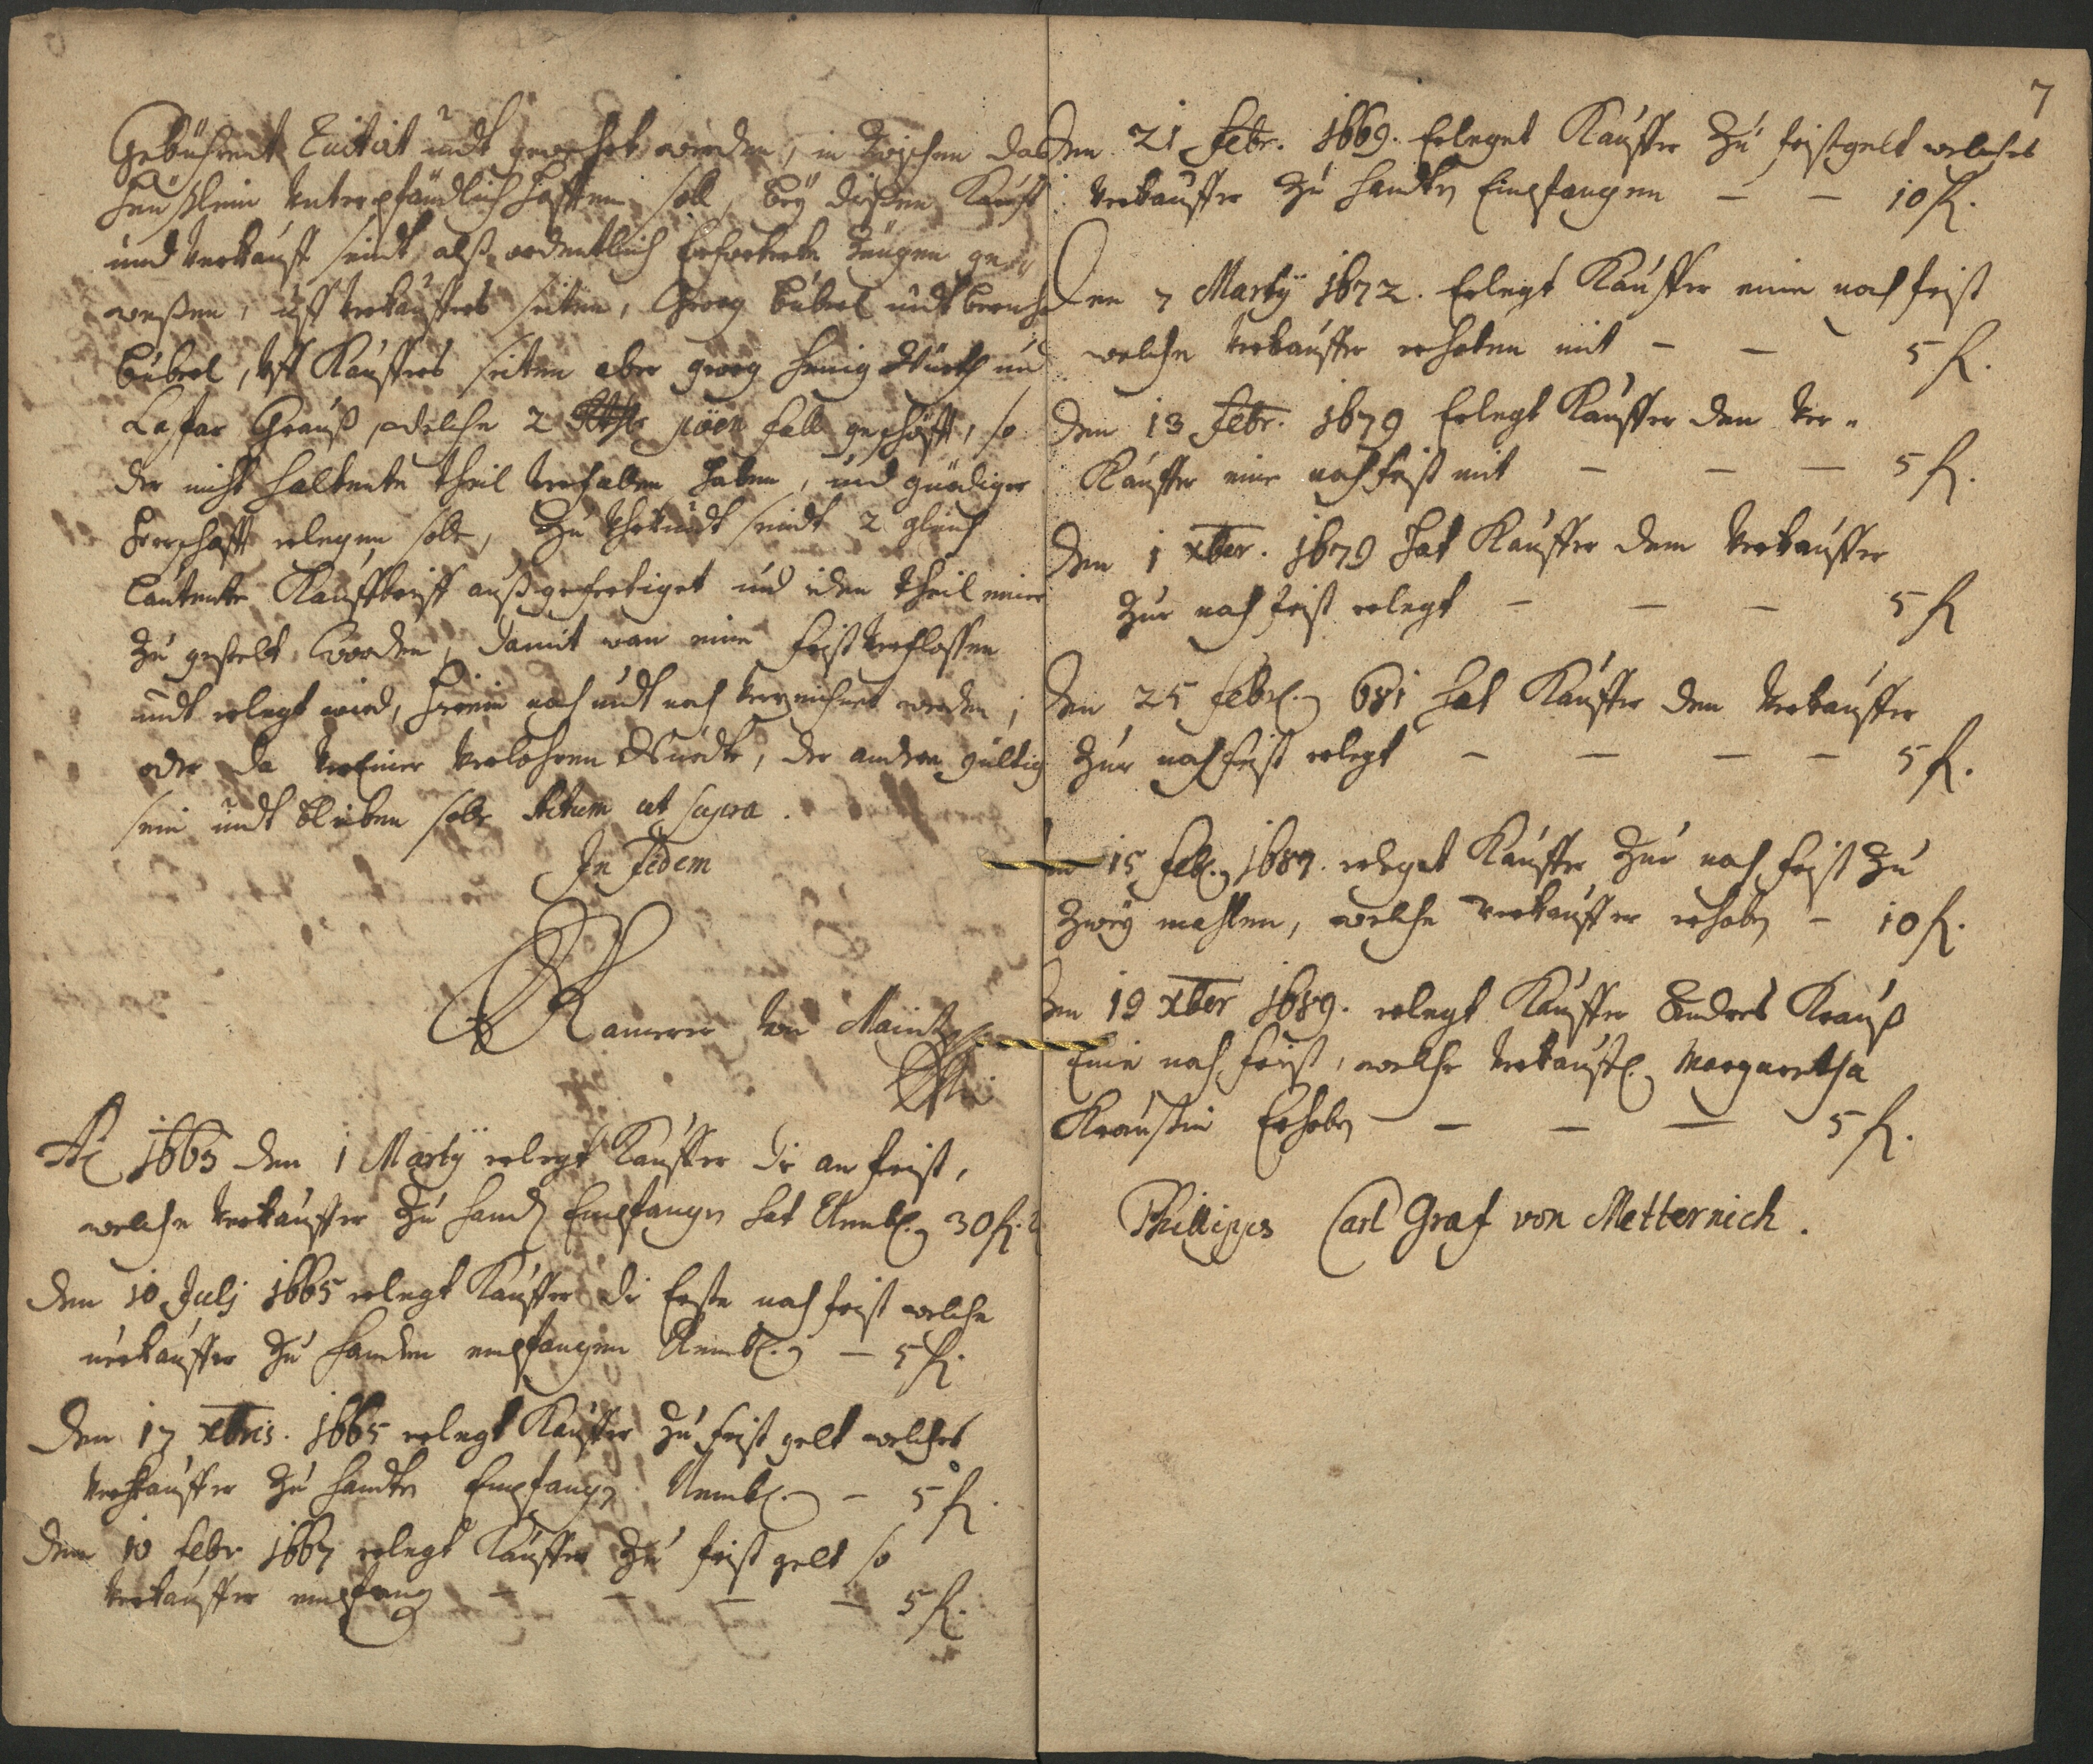 Gebührent Euitirt undt gewehrt werden, in zwischen das
Heußlein unterpfändlich hafften soll, bey dießen Kauff
und Verkauff seindt alß ordentlich Erforderte zeugen ge-
weßen, uff Verkauffers seiten, Georg Bübel undt
Bübel, uff Kauffers seiten aber Georg und
Casfar Grauß, welche 2 pöen fall geschöfft, so
der nicht haltente theil verfallen haben, und gnädiger
herrschafft erlegen solle, zu Uhrkundt seindt 2 gleich
lautente Kauffbrieff außgefertiget und iden theil einer
zu gestelt worden, damit wan eine frist verflossen
undt erlegt wird, hierin nach undt nach verzeichnet werden,
oder da einer verlohren wurdte, der andere gültig
sein undt bleiben solle Actum ut supra.
In Fidem
Kamerer von Maintz
Ao 1665 den 1 Martÿ erlegt Kauffer die an frist,
welche Verkauffer zu Handt Empfangen hat Nembl. 30 fl.
den 10 Julj 1665 erlegt Kauffer die Erste nach frist welche
verkauffer zu Handen empfangen Nembl. – 5 fl.
Den 17 xbris. 1665 erlegt Kauffer zu frist gelt welches
Verkauffer zu Handten Empfangen Nembl. – 5 fl.
den 10 febr 1667 erlegt Kauffer zu frist gelt so
Verkauffer empfang – – – – 5 fl.
7
den 21 Febr. 1669. Erleget Kauffer zu fristgelt welches
Verkauffer zu Handten Empfangen – – 10 fl.
Den 7 Martÿ 1672. Erlegt Kauffer eine nach frist
welche Verkauffer erhoben mit – – 5 fl.
den 13 Febr. 1679 Erlegt Kauffer dem Ver-
Kauffer eine nach frist mit – – – 5 fl.
den 1 xber. 1679 hat Kauffer dem Verkauffer
zur nach frist erlegt – – – 5 fl
den 25 Febr. 681 hat Kauffer dem Verkauffer
zur nach frist erlegt – – – – 5 fl.
15 Feb. 1687. erleget Kauffer zur nach frist zu
zwey mahlen, welche Verkauffer erhoben – 10 fl.
den 19 xber 1689. erlegt Kauffer Andres Krauß
Eine nach frist, welche Verkauff. Margaretha
Kraußin Erhoben – – – 5 fl.
Philipps Carl Graf von Metternich.